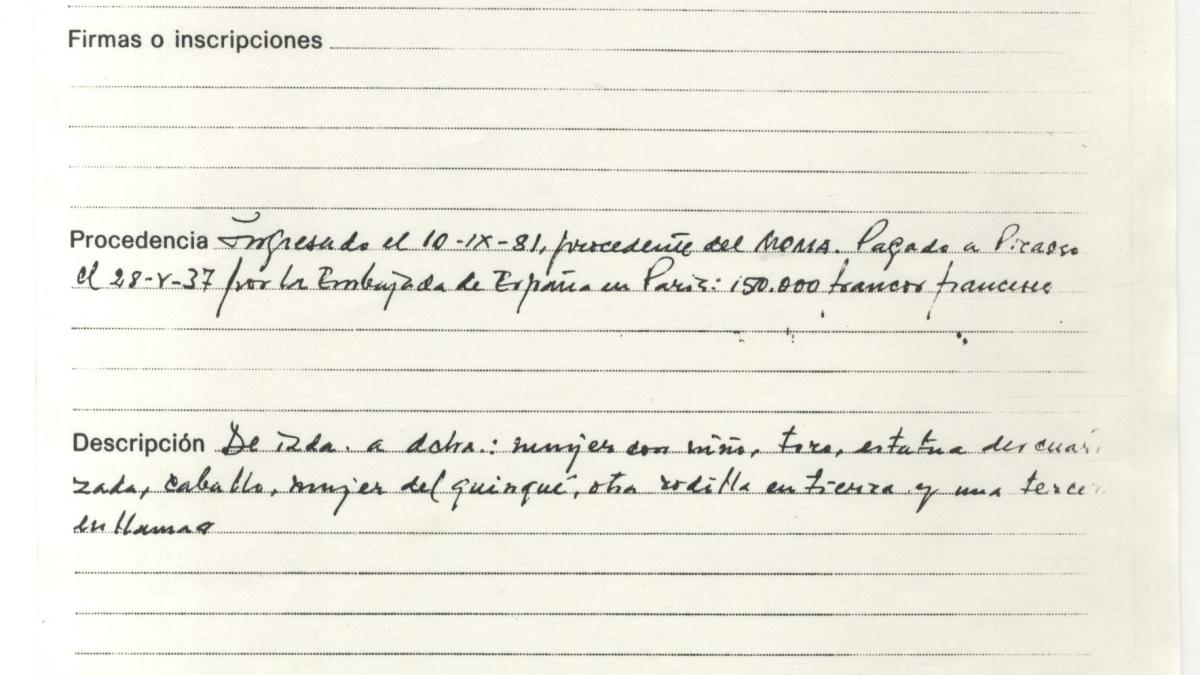 Firmas o inscripciones
Procedencia Ingresado el 10-IX-81, procedente del MOMA. Pagado a Picasso
el 28-V-37 por la Embajada de España en París: 150.000 francos franceses
Descripción De izda. a dcha.: mujer con niño, toro, estatua descuarti
zada, caballo, mujer del quinqué, otra rodilla en tierra y una tercera
en llamas